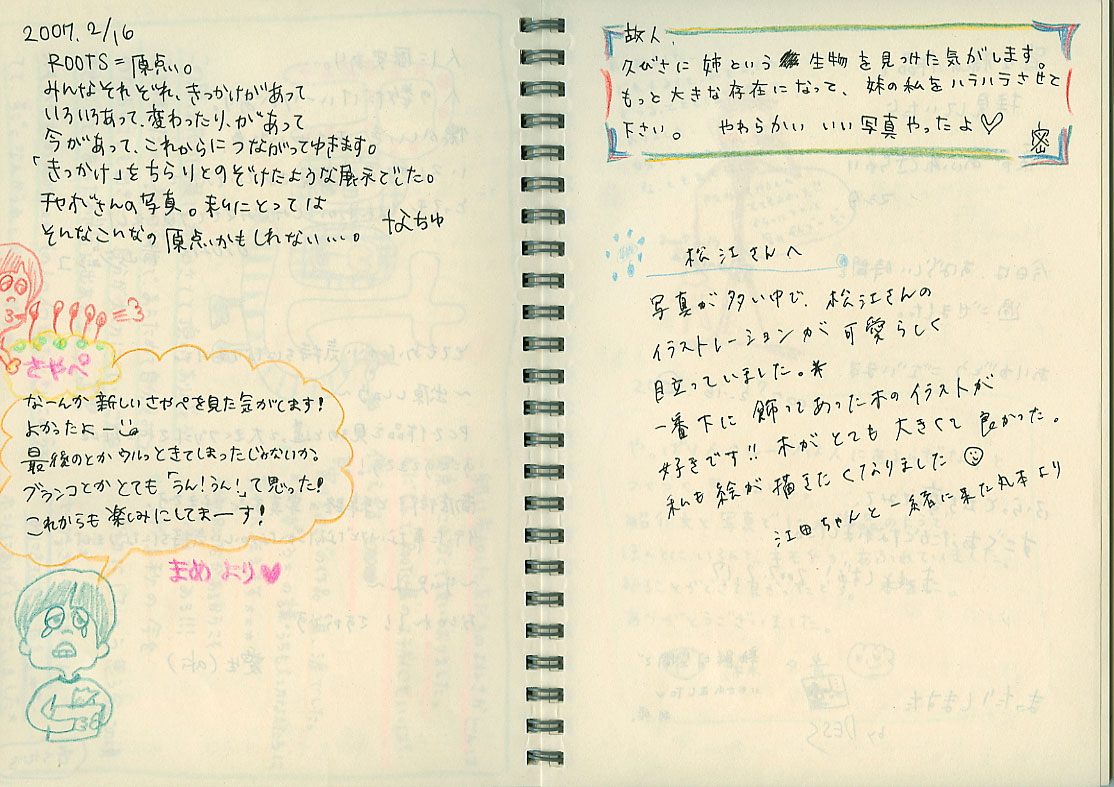 2007.2/16
ROOTS=原点。
みんなそれぞれ、きっかけがあって
いろいろあって、変わったり、があって
今があって、これからにつながってゆきます。
「きっかけ」をちらりとのぞけたような展示でした。
チャボさんの写真。私にとっては
そんなこんなの原点かもしれない…。 なちゅ
さやぺ
なーんか新しいさやぺを見た気がします!
よかったよー
最後のとかウルっときてしまったじゃないか。
ブランコとかとても「うん!うん!」て思った!
これからも楽しみにしてまーす!
まめより♥
故人、
久がさに姉という生物を見つけた気がします。
もっと大きな存在になって、妹の私をハラハラさせて
下さい。 やわらかい いい写真やったよ♡
松江さんへ
写真が多い中で、松江さんの
イラストレーションが可愛らしく
目立っていました。*
一番下に飾ってあった木のイラストが
好きです!! 木がとても大きくて良かった。
私も絵が描きたくなりました☺
江田ちゃんと一緒に来た丸本より